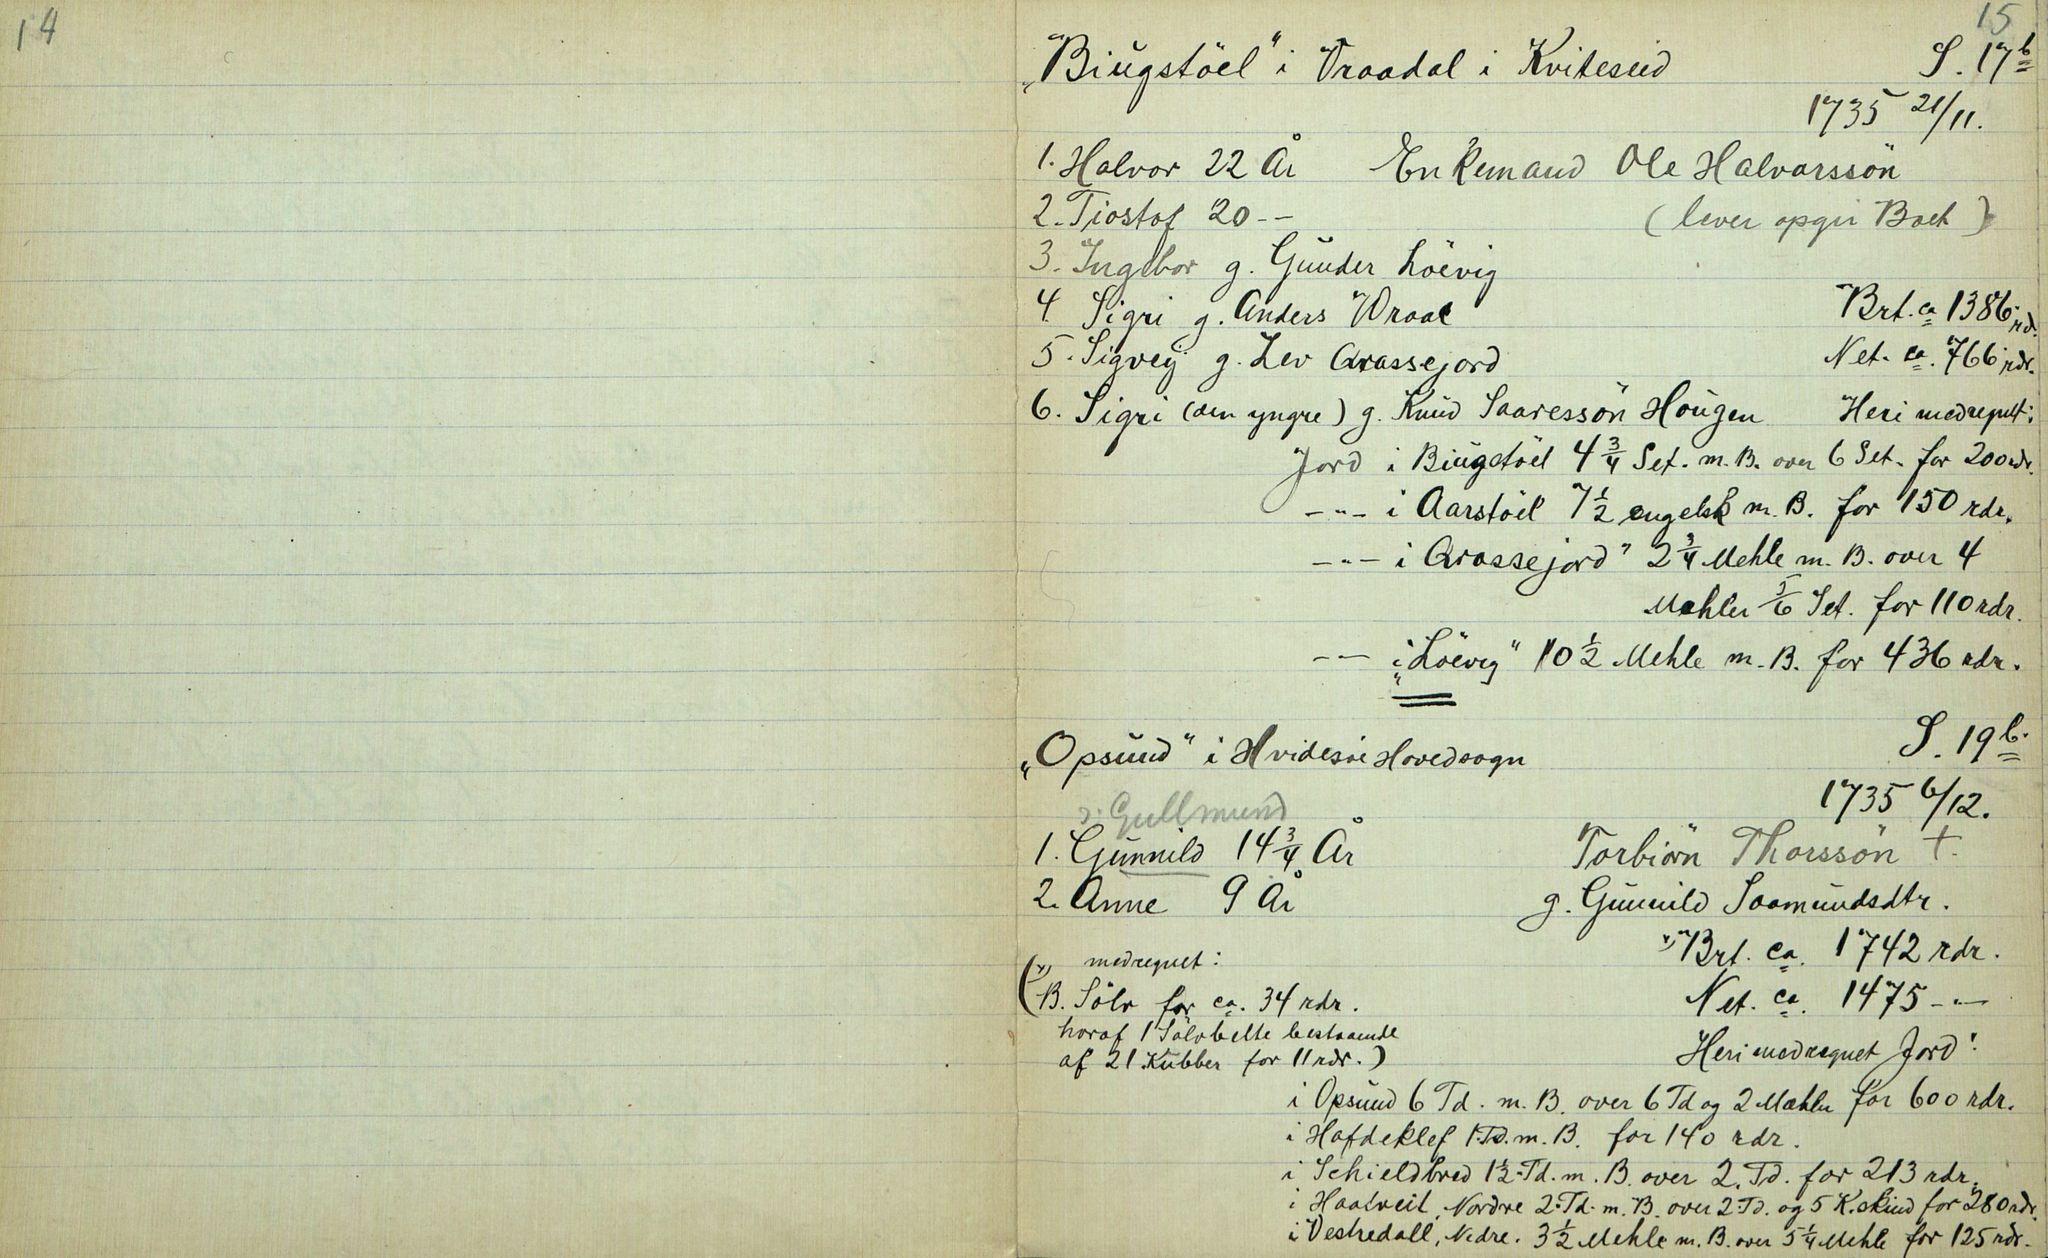 14
15
„Biügstöel" i Vraadal i Kviteseid S. 17b
1735 21/11.
1. Halvor 22 År Enkemand Ole Halvorssön
2. Tiostof 20 -- (lever opgir Boet)
3. Ingebor g. Gunder Löevig
4. Sigri g. Anders Vraae Brt. ca 1386 rd.
5. Sigvej g. Lev Grassejord Net. ca. 766 rdr.
6. Sigri (den yngre) g. Knud Saaressön Hougen Heri medregnet:
Jord i Biügstöel 4 3/4 Set. m. B. over 6 Set. for 200 rdr.
-"- i Aarstöel 7 1/2 engelsk m. B. for 150 rdr.
-"- i Grassejord" 2 3/4 Mehle m. B. over 4
Mæhler 5/6 Set. for 110 rdr.
-- i „Löevig" 10 1/2 Mehle m. B. for 436 rdr.
„Opsund" i Hvidesøe Hovedsogn S. 19b.
1735 6/12.
ɔ: Gullmund
1. Gunnild 14 3/4 År Torbiørn Thorssön †.
2. Anne 9 År g. Gunnild Saamundsdtr.
x) Brt. ca. 1742 rdr.
(x) medregnet: Net. ca. 1475 -"-
B. Sölv for ca. 34 rdr.
horaf 1 Sölvbelte bestaaende Heri medregnet Jord:
af 21 Kubber for 11 rdr.)
i Opsund 6 Td. m. B. over 6 Td og 2 Mæhler for 600 rdr.
i Hafdeklef 1 Td. m. B. for 140 rdr.
i Schieldbred 1 1/2 Td. m. B. over 2. Td. for 213 rdr.
i Haatveit, Nordre 2 Td. m. B. over 2 Td. og 5 K.skind for 280 rdr.
i Vestredall, Nedre. 3 1/2 Mehle m. B. over 5 1/4 Mehle for 125 rdr.